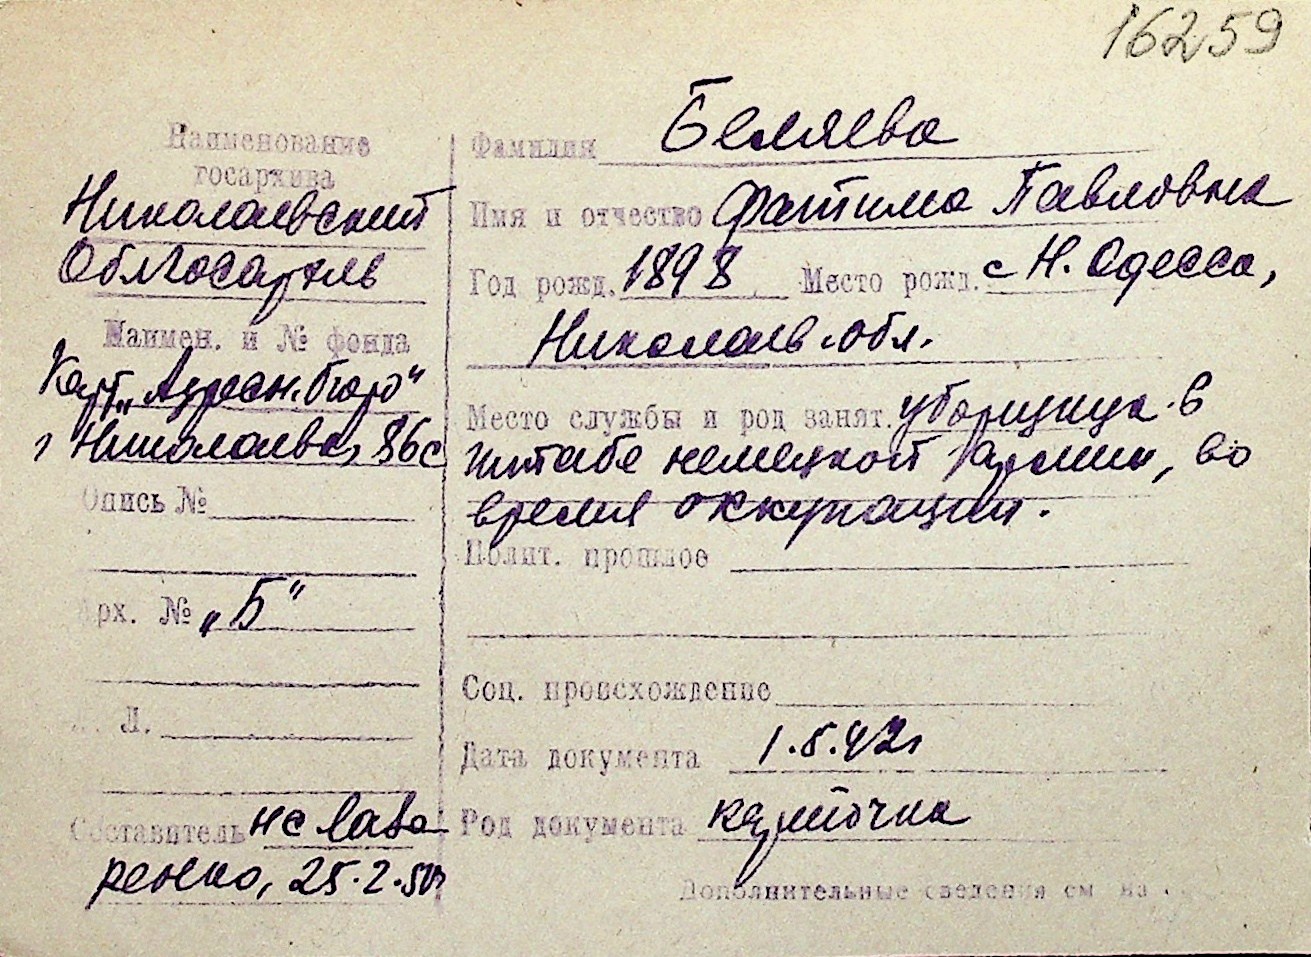 16259
Наименование
госархива
Николаевский
Облгосархив
Наимен. и № фонда
Карт. „Адресн. бюро"
г Николаева, 86с
Опись №
Арх. № „Б"
Л.
Составитель
ренко, 25.2.50г
Фамилия Беляева
Имя и отчество Фатима Павловна
Год рожд. 1898 Место рожд. с Н. Одесса,
Николаев. обл.
Место службы и род занят. уборщица в
штабе немецкой армии, во
время оккупации.
Полит. прошлое
Соц. происхождение
Дата документа 1.5.42г
Род документа карточка
Дополнительные сведения см на